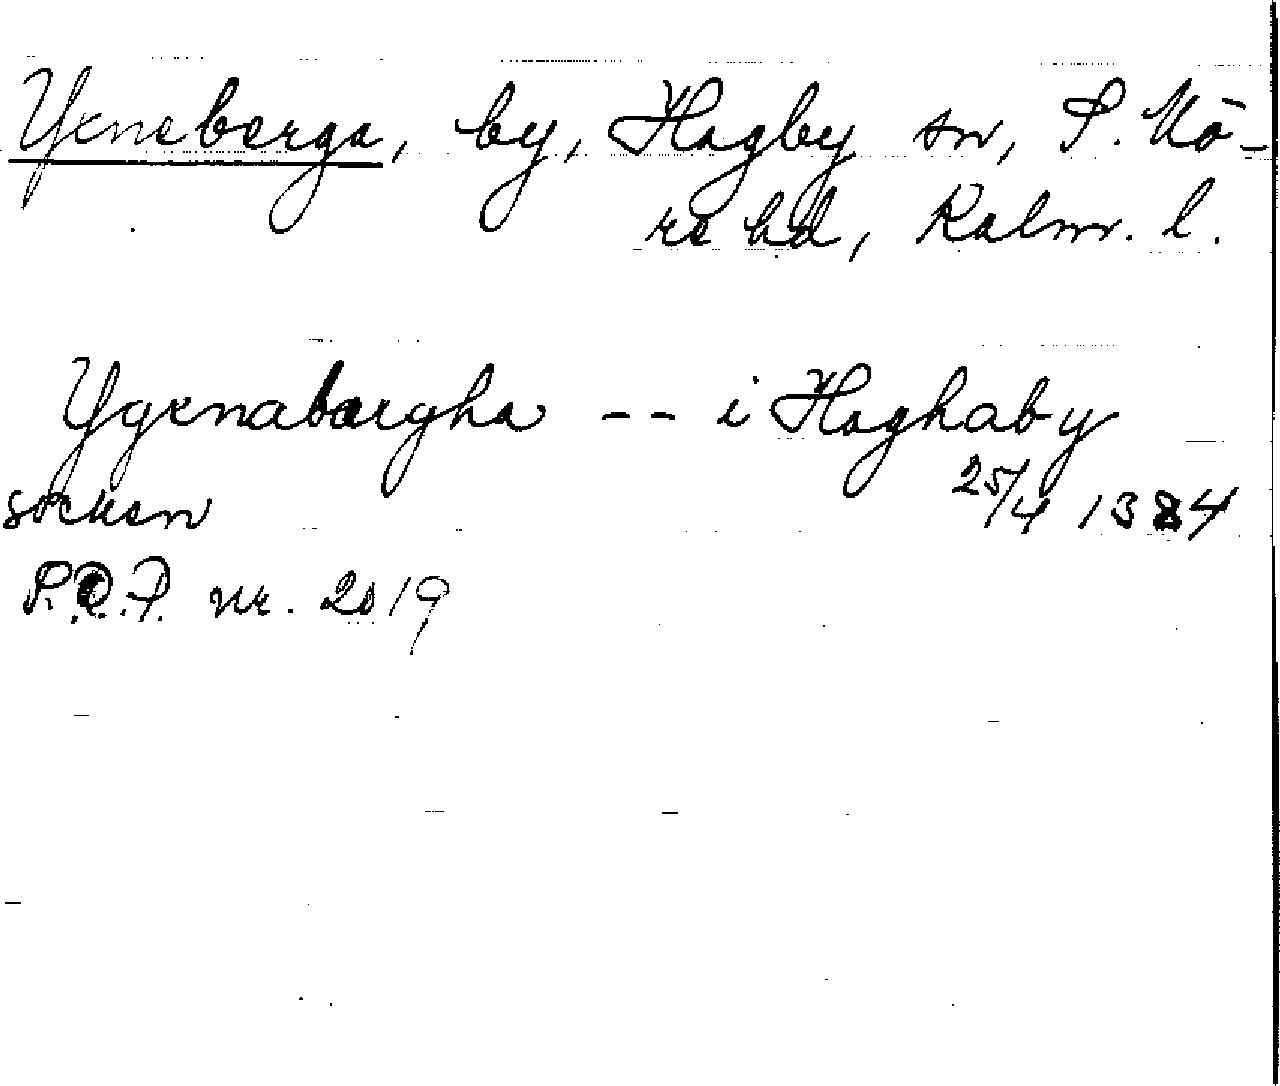 Yxneberga, by, Hagby sn, S. Mö-
re hd, Kalm. l.
Ygxnabærgha -- i Haghaby
socken 25/4 1384
S.R.P. nr. 2019